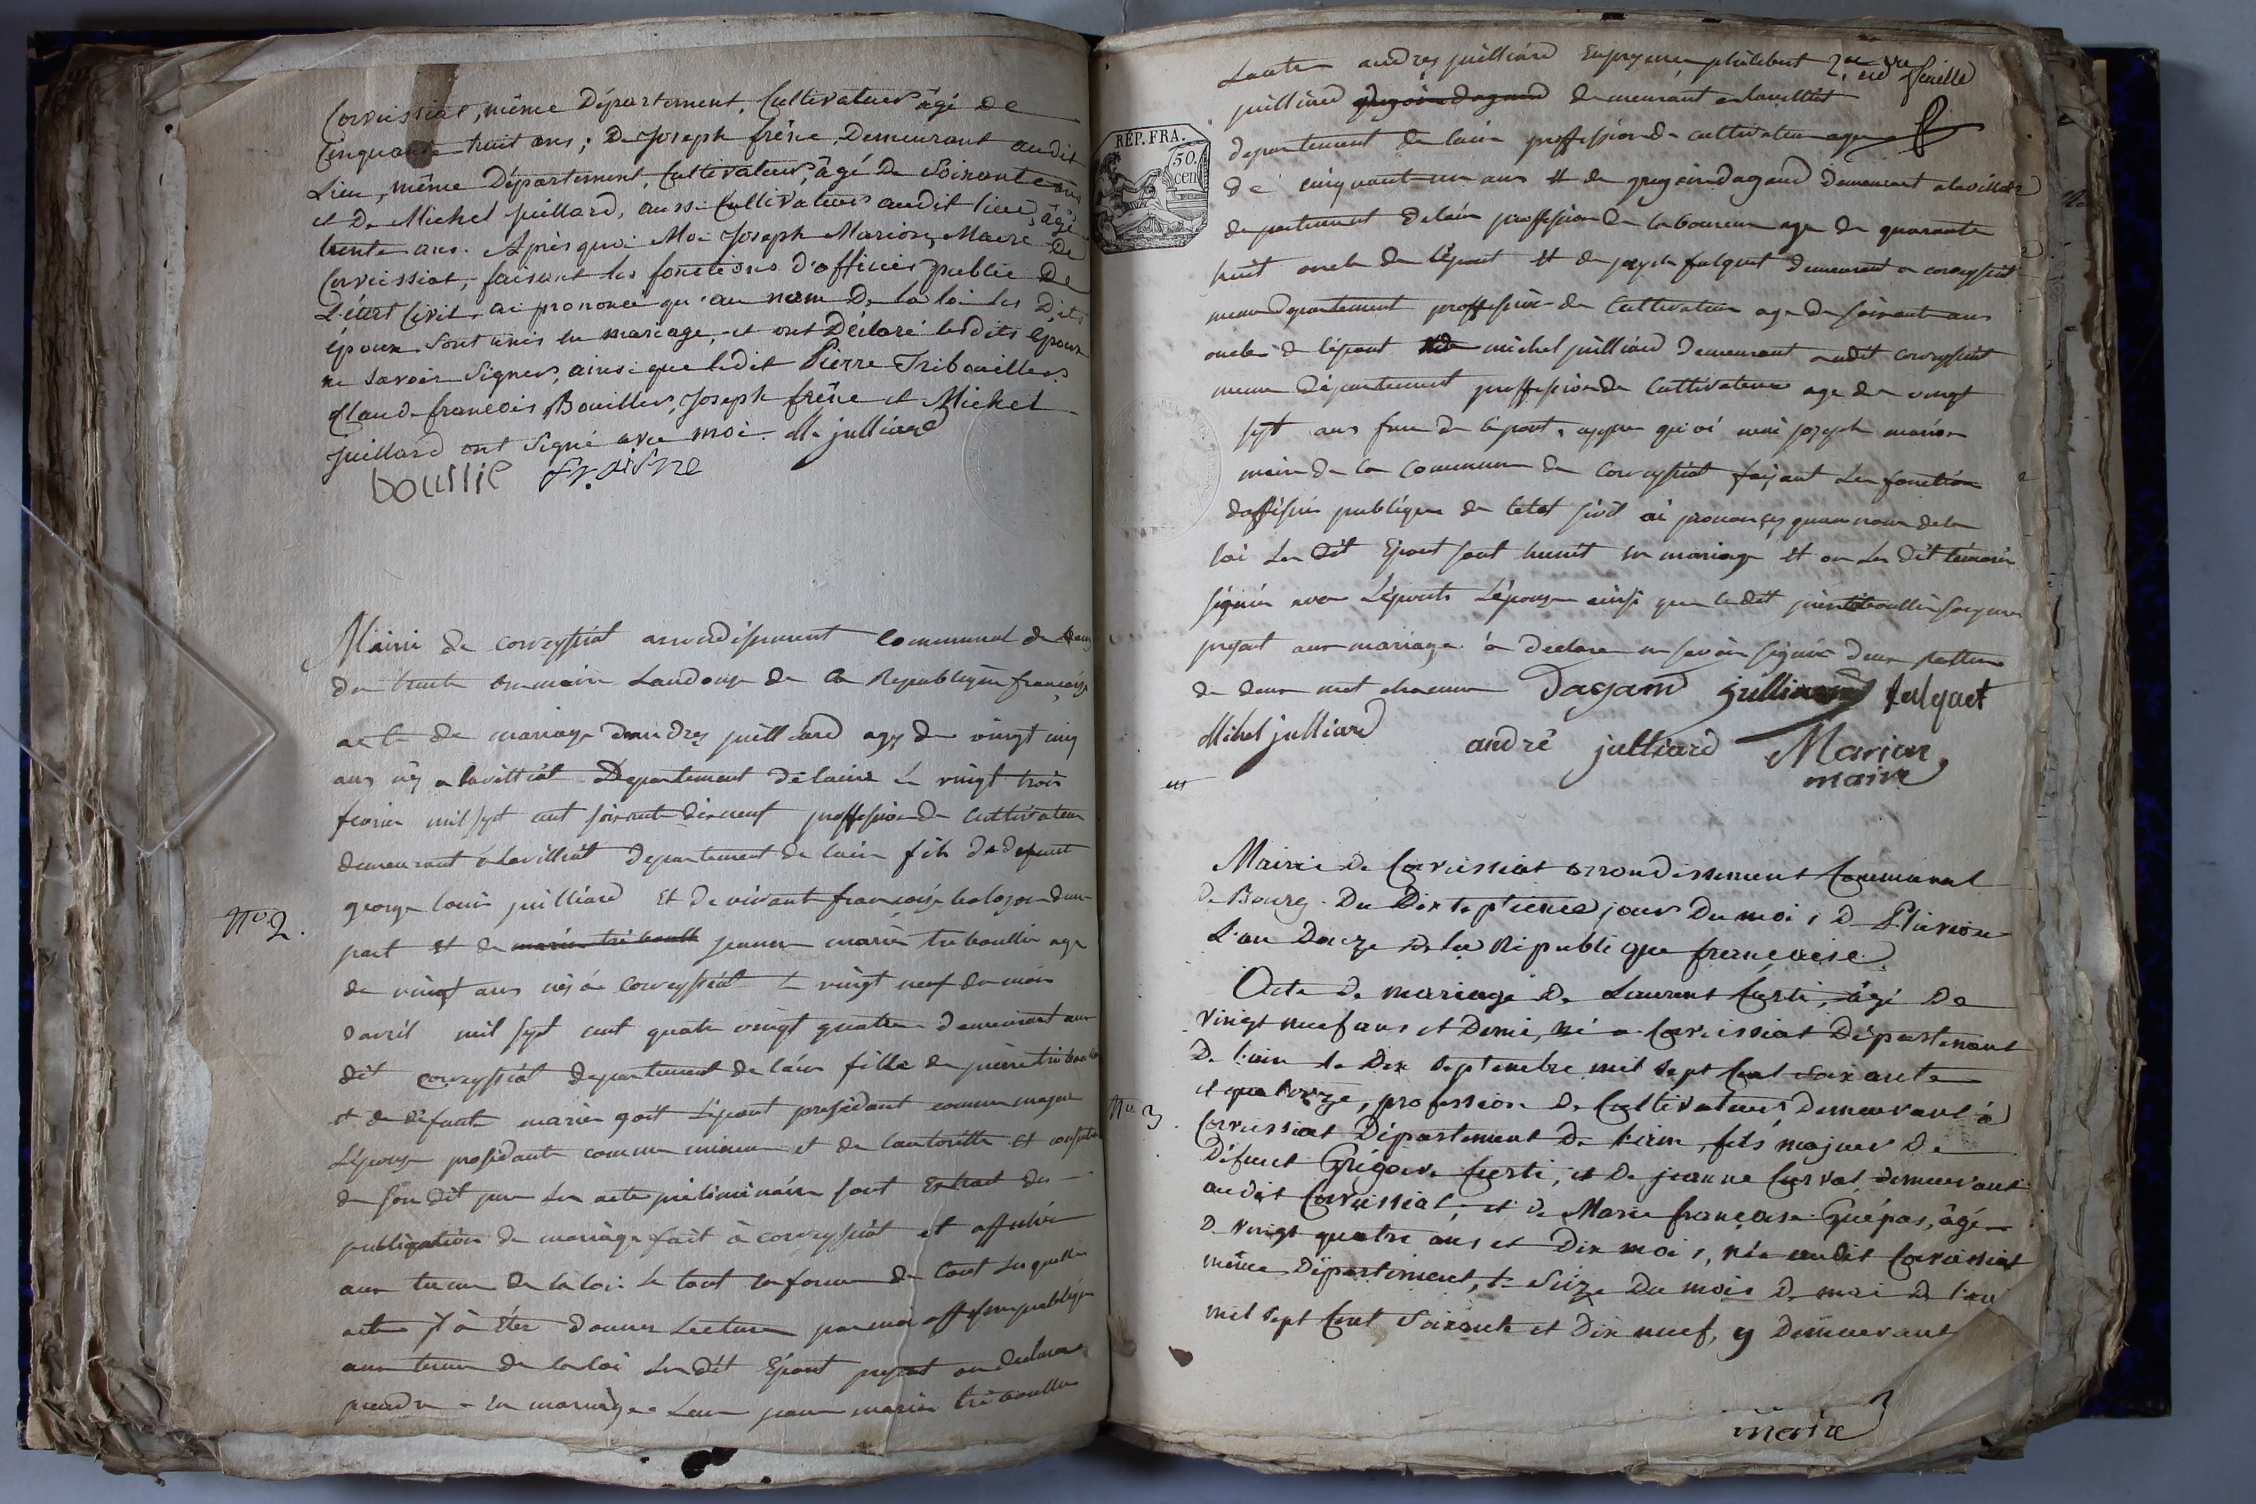 Corveissiat, même Département, Cultivateur âgé de
Cinquante huit ans; De Joseph frêne, Demeurant audit
Lieu, même Département, Cultivateur, âgé De Soixante ans
et De Michel Juillard, aussi Cultivateur audit lieu, âgé
trente ans. Après quoi Moi Joseph Marion, Maire De
Corveissiat, faisant les fonctions d'officier public De
L'état Civil, ai prononcé qu'au nom De la loi les Dits
époux Sont unis en mariage, et ont Déclaré lesdits époux
ne Savoir Signer, ainsi que ledit Pierre Tribouiller.
Claude françois Bouiller, Joseph frêne et Michel
Juillard ont Signé avec moi. M. julliard
bouillie
N° 2.
Mairie de corveyssiat arrondissement communal de
du trente Brumaire Landouze de la Republique françoise
acte de mariage dandrez juilliard agez de vingt cinq
ans nez a lavilliat Departement delain Le vingt trois
fevrier mil sept cent soixante dixneuf proffession de cultivateur
demeurant a Lavilliat departement de lain fils de defunt
george louis juilliard Et de vivant françoise dune
part et de marie triboulle jeanne marie triboullie age
de vingt ans nez a Corveyssiat Le vingt neuf du mois
davril mil sept cent quatre vingt quatre demeurant au
dit corveyssiat departement de lain fille de pierre
et de defunte marie goit L'epoux prosedant comme majeur
L'epouse prosedante comme mineure et de lautoritte et
de son dit pere Les acte preliminaire sont Extrait des
publication de mariage fait à corveyssiat et affichés
aux terme de la loi Le tout en forme de tout Lesquelle
acte il a êtez donner Lecture par moi officier publique
aux terme de la loi Les dit Epoux present on declarer
prendre - en mariage Lun jeanne marie triboullie
2me feuille
Lautre andrez juilliard En presence philibert
juilliard gregoir dagand demeurant a lavilliat
departement de lain proffession de cultivateur age
de cinquant un ans et de gregoir dagand demeurant a lavilliat
departement delain proffession de laboureur age de quarante
huit oncle de lépoux et de joseph falquet demeurant a corveyssiat
meme departement proffession de Cultivateur age de soixante ans
oncle de lépoux michel juilliard demeurant audit corveyssiat
meme Departement proffession de Cultivateur age de vingt
sept ans frere de lepoux, apres quoi moi joseph marion
maire de la commune de Corveyssiat faisant Les fonction
doffisier publique de letat sivil ai pronon quau nom de la
loi Les dit Epoux sont hunit en mariage et on Les dit temoin
signer avec L'époux L'épouse ainsi que ledit
present aux mariage a declare ne savoir signer
de deux mot Dagand juilliard falquet
Mihel julliard andré julliard Marion
maire
RÉP. FRA.
50.
cen
N° 3
Mairie de Corveissiat arrondissement Communal
De Bourg. Du Dix septieme jour Du mois De Pluviose
L'an Douze De la République française.
Acte De mariage De Laurent Curti, âgé De
vingt neuf ans et Demi, né a Corveissiat Département
De l'ain le Dix Septembre mil Sept Cent Soixante
et quatorze, profession De Cultivateur, Demeurant à
Corveissiat Département De l'ain, fils majeur De
Défunt Grégoire Curti, et De jeanne Curval demeurant
audit Corveissiat, et De Marie françoise Guépas, âgée
De vingt quatre ans et Dix mois, née audit Corveissiat
même Département, le Seize Du mois De mai De l'an
mil Sept Cent Soixante et Dix neuf, y Demeurant
maire